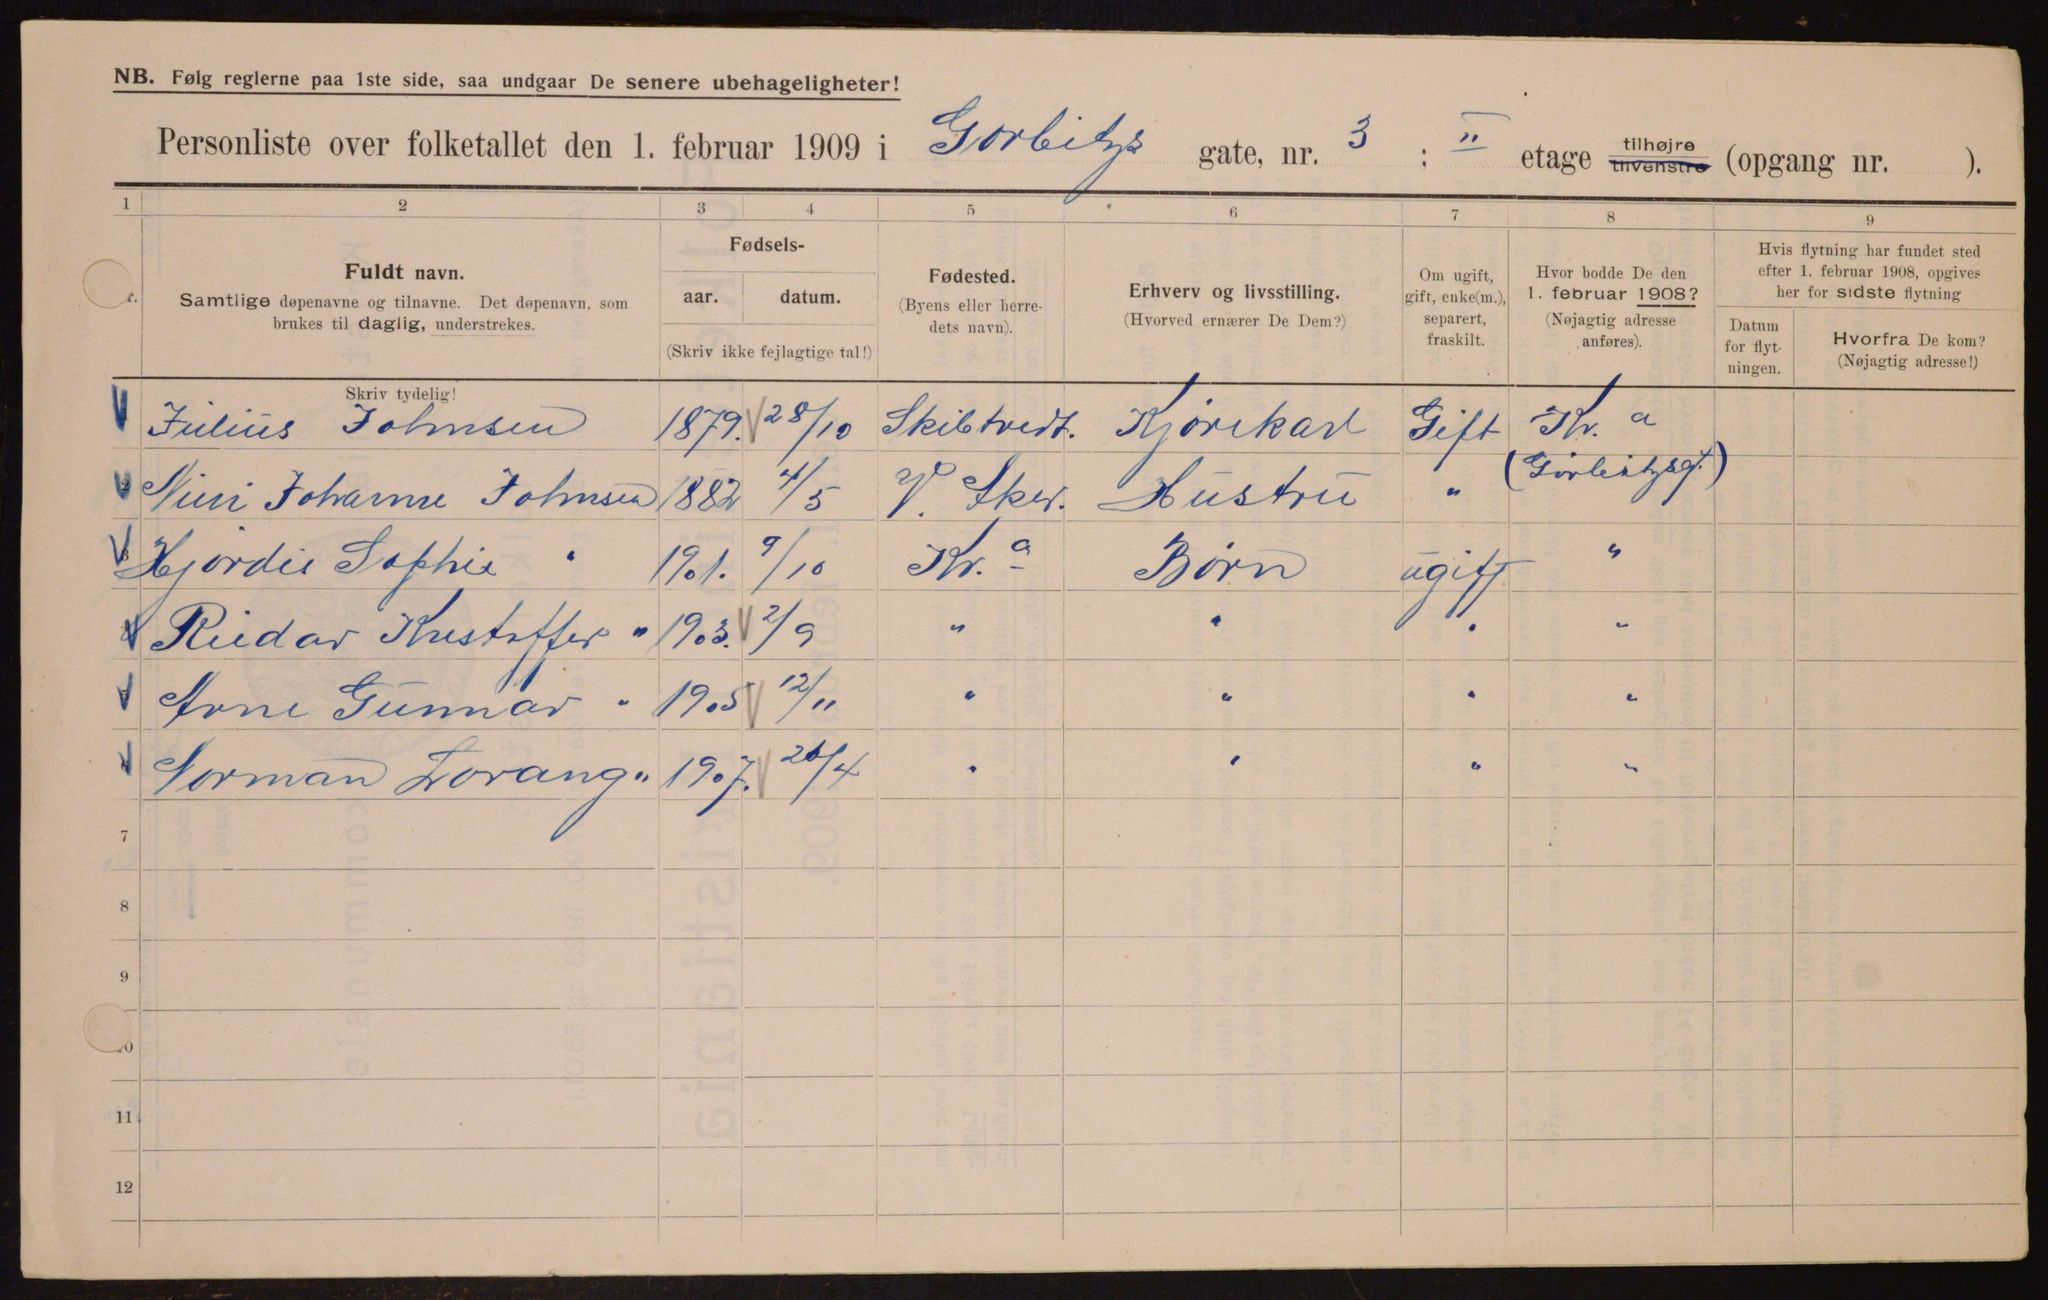 NB. Følg reglerne paa 1ste side, saa undgaar De senere ubehageligheter!
Personliste over folketallet den 1. februar 1909 i Gorbitys gate, nr. 3 ; II etage tilhøjre tilvenstre (opgang nr. ).
1 2 3 4 5 6 7 8 9
r. Fuldt navn.
Samtlige døpenavne og tilnavne. Det døpenavn, som
brukes til daglig, understrekes.
Fødsels-
aar. datum.
(Skriv ikke fejlagtige tal!)
Fødested.
(Byens eller herre-
dets navn).
Erhverv og livsstilling.
(Hvorved ernærer De Dem?)
Om ugift,
gift, enke(m.),
separert,
fraskilt.
Hvor bodde De den
1. februar 1908?
(Nøjagtig adresse
anføres).
Hvis flytning har fundet sted
efter 1. februar 1908, opgives
her for sidste flytning
Datum
for flyt-
ningen.
Hvorfra De kom?
(Nøjagtig adresse!)
Skriv tydelig!
Julius Johnsen 1879. 28/10 Skibtvedt. Kjørekarl Gift Kr. a
2 Nini Johanne Johnsen 1882 4/5 V. Aker. Hustru " (Gørbitzsgt.)
3 Hjørdis Sophie " 1901. 9/10 Kr. a Børn ugift "
4 Reidar Kristoffer " 1903. 2/9 " " " "
5 Arne Gunnar " 1905 12/11 " " " "
6 Norman Lorang " 1907. 26/4 " " " "
7
8
9
10
11
12